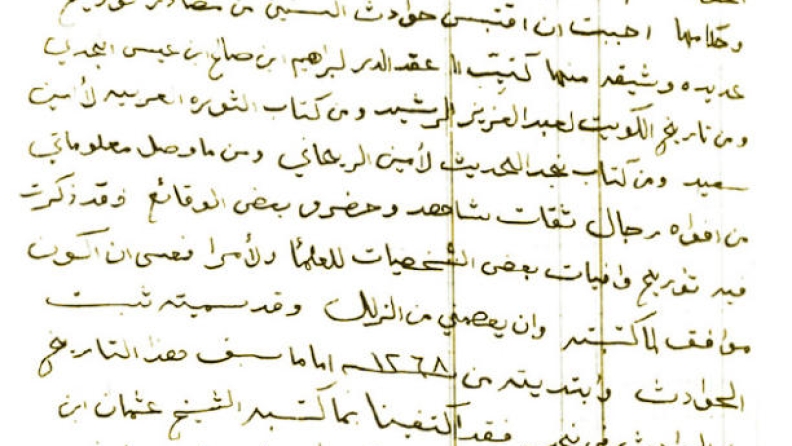 وكلامها احببت ان اقتبس حوادث السنين من مصادر تواريخ
عديده وشيقه منها كتيب العقد الدر لبراهيم ابن صالح ابن عيسى النجدي
ومن تاريخ الكويت لعبد العزيز الرشيد ومن كتاب الثوره العربيه لأمين
سعيد ومن كتاب نجد الحديث لأمين الريحاني ومن ما وصل معلوماتي
من افواه رجال ثقات شاهد وحضرو بعض الوقائع وقد ذكرت
فيه تؤريخ وافيات بعض الشخصيات للعلمأ ولأمرا فعسى ان اكون
موافق لما كتبته وان يعصمني من الزلل وقد سميته ثبت
الحوادث وأبتديته من ١٢٦٨ اما ما سبف هذا التاريخ
فقد اكتفينا بما كتبه الشيخ عثمان ابن